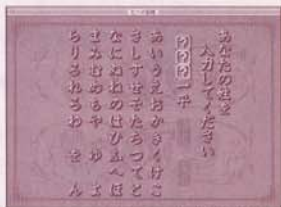 あなたの姓を
入力してください
一平
あいうえおかきくけこ
さしすせそたちつてと
なにぬねのはひふへほ
まみむめもや ゆ よ
らりるれろわ を ん